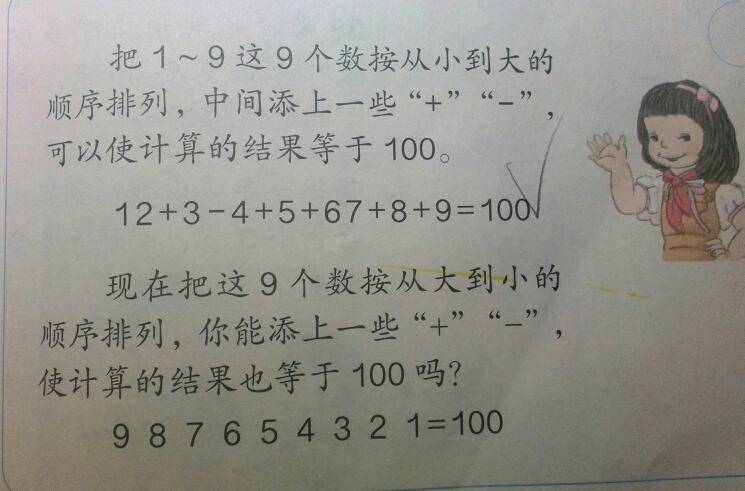 把1~9这9个数按从小到大的
顺序排列，中间添上一些“+”“-”，
可以使计算的结果等于100。
12+3-4+5+67+8+9=100
现在把这9个数按从大到小的
顺序排列，你能添上一些“+”“-”，
使计算的结果也等于100吗？
9 8 7 6 5 4 3 2 1=100